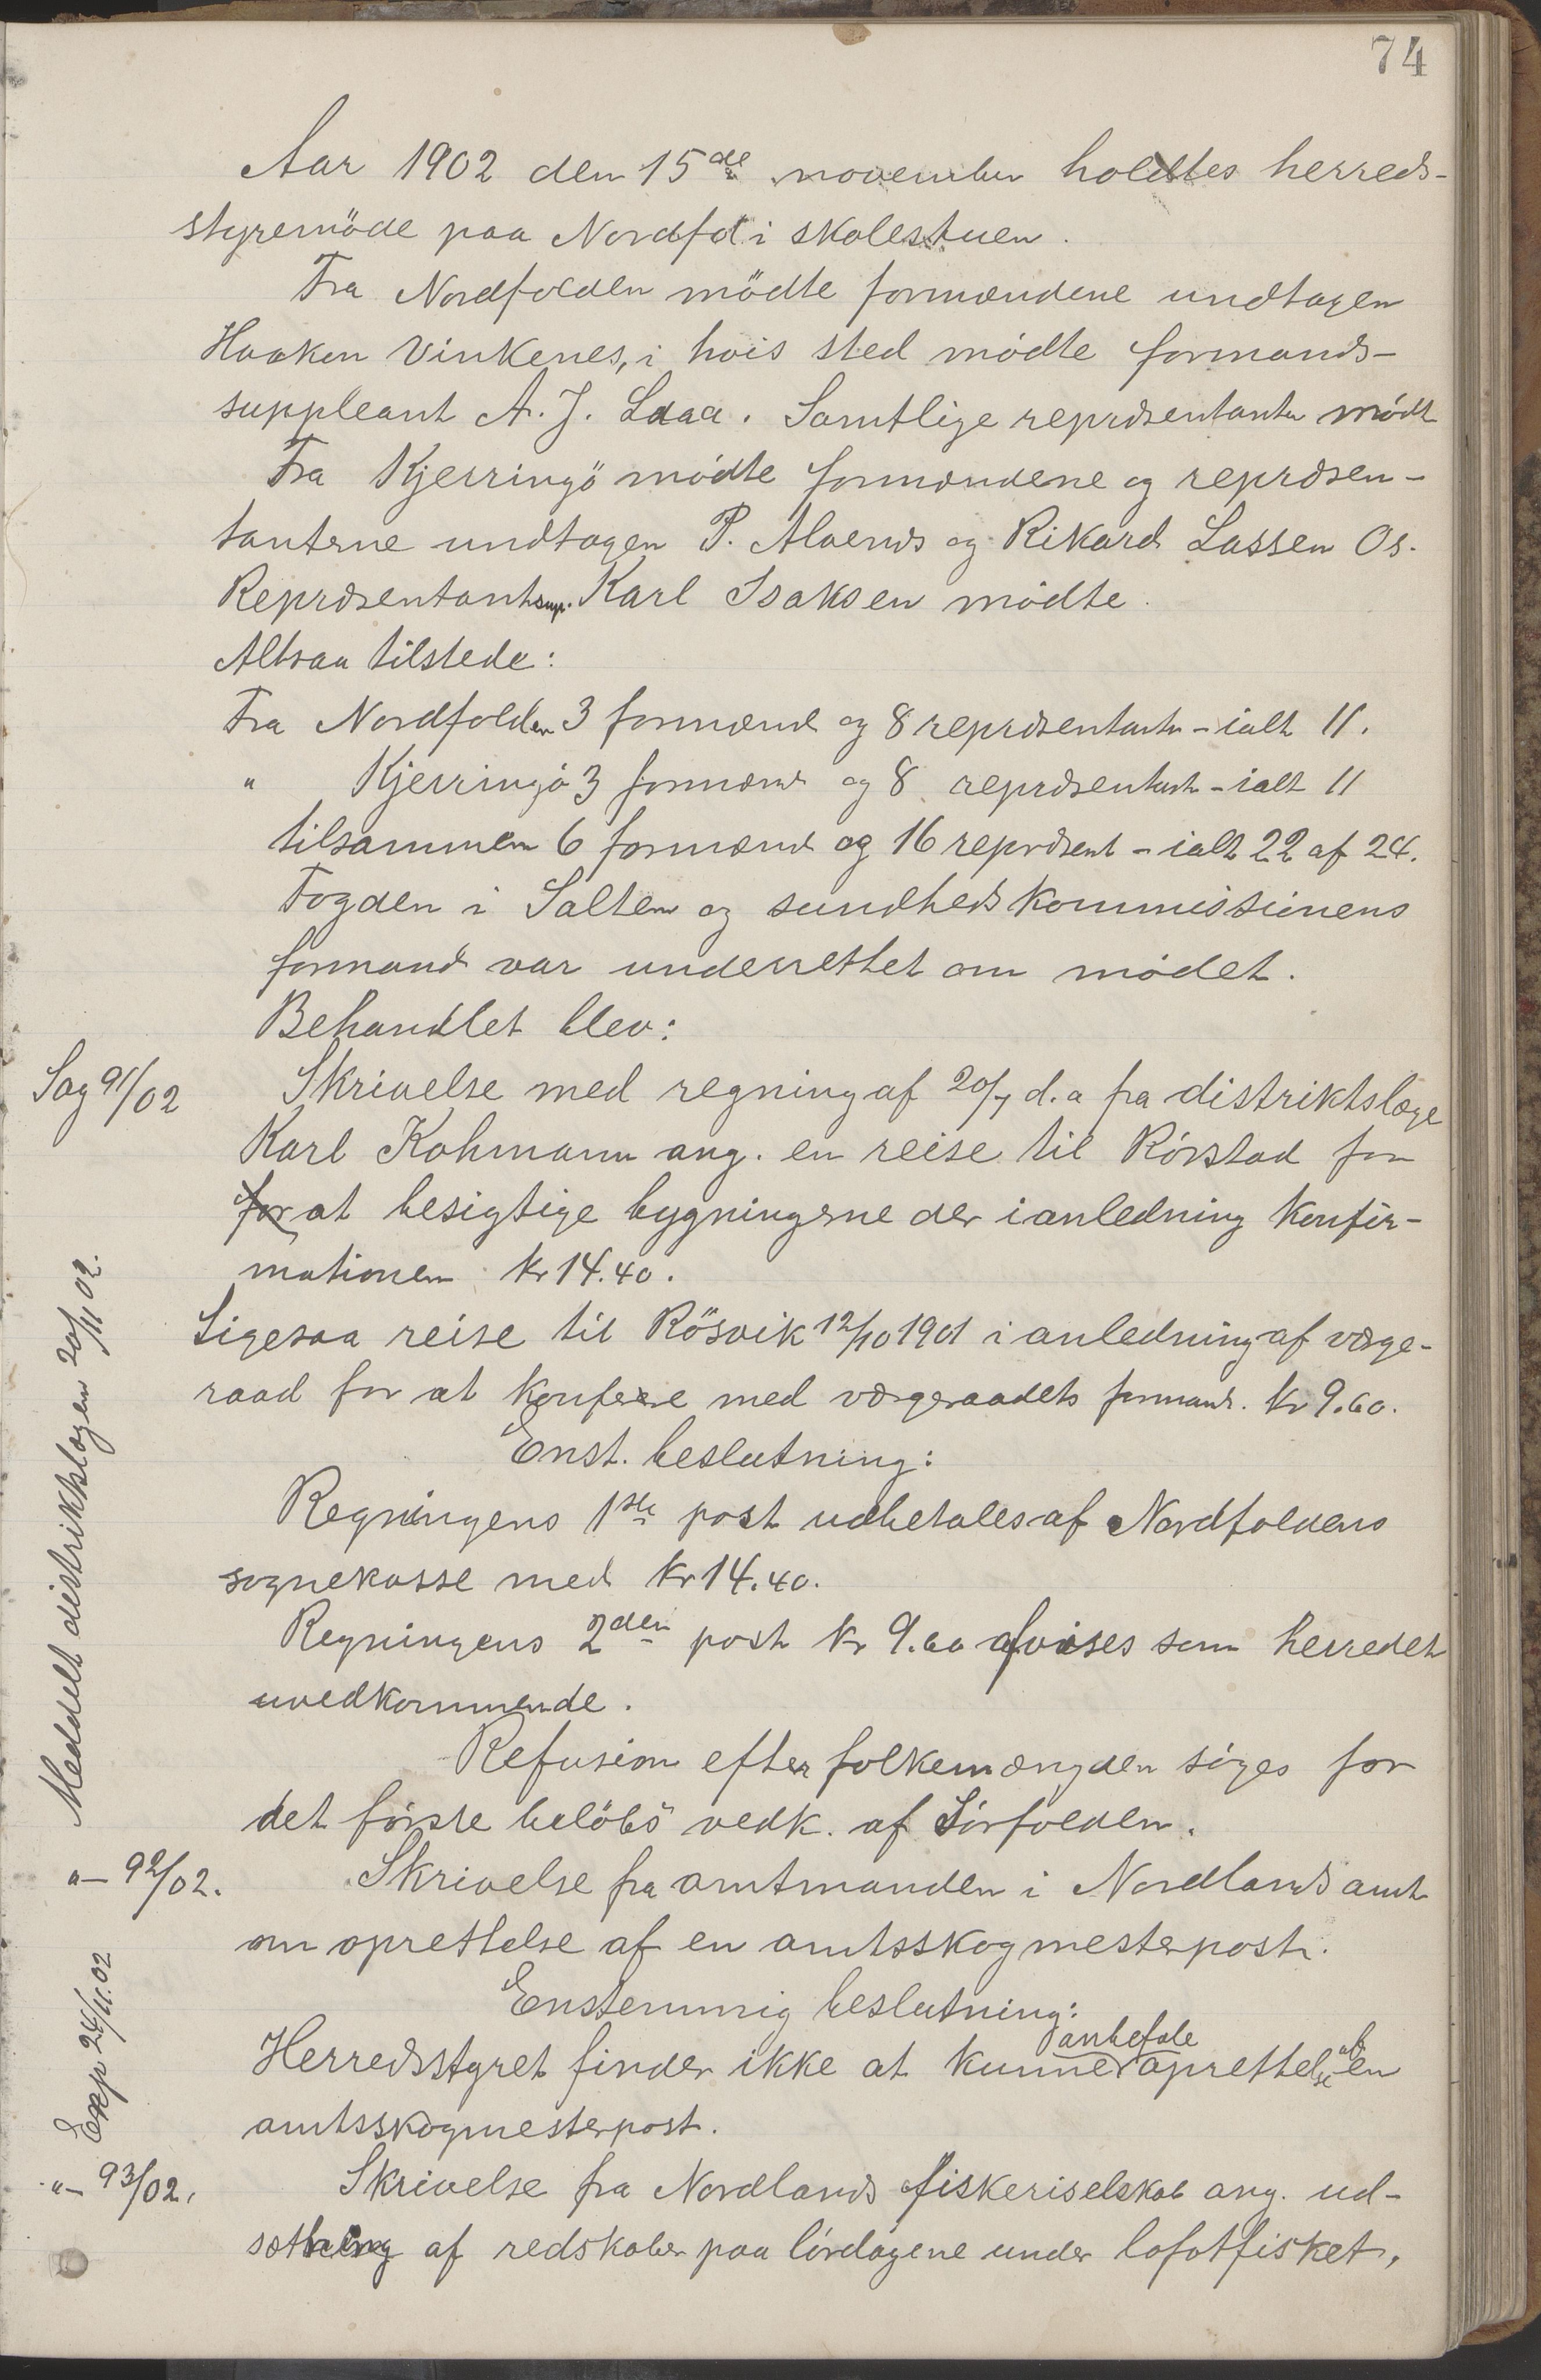 74
Aar 1902 den 15de november holdtes herreds-
styremöde paa Nordfol i skolestuen.
Fra Nordfolden mödte formændene undtagen
Haakon Vinkenes, i hvis sted mødte formands-
suppleant A. J. Laaa. Samtlige repræsentanter mødt
Fra Kjerringö mødte formændene og repræsen-
tanterne undtagen P. Alvenes og Rikard Lassen Os.
Repræsentantsup. Karl Isaksen mødte.
Altsaa tilstede:
Fra Nordfolden 3 formænd og 8 repræsentanter - ialt 11.
" Kjerringø 3 formænd og 8 repræsentant - ialt 11
tilsammen 6 formænd og 16 repræsent - ialt 22 af 24.
Fogden i Salten og sundhedskommissionens
formand var underrettet om mødet.
Behandlet blev:
Sag 91/02
Skrivelse med regning af 20/7 d.a fra distriktslæge
Karl Kahmann ang. en reise til Rørstad for
for at besigtige bygningerne der i anledning konfir-
mationen kr 14.40.
Ligesaa reise til Rösvik 12/10 1901 i anledning af værge-
raad for at konferere med værgeraadets formand. kr 9.60.
Enst. beslutning:
Regningens 1ste post udbetales af Nordfoldens
sognekasse med kr 14.40.
Regningens 2den post kr 9.60 afvises som herredet
uvedkommende.
Refusion efter folkemængden søges for
det første belöbs vedk. af Sørfolden.
Meddelt distriktslægen 20/11 02.
"- 92/02.
Skrivelse fra amtmanden i Nordlands amt
om oprettelse af en amtsskogmesterpost.
Enstemmig beslutning:
Herredsstyret finder ikke at kunne anbefale oprettelse af en
amtsskogmesterpost.
Exp 24/11.02
"- 93/02.
Skrivelse fra Nordlands fiskeriselskab ang. ud-
sætning af redskaber paa lørdagene under lofotfisket,